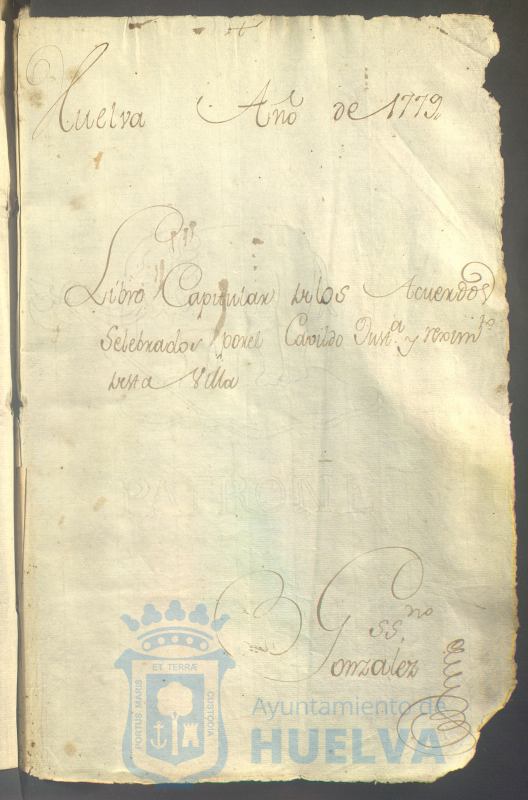 Huelva Año de 1779.
Libro Capitular de los Acuerdos
Selebrados por el Cavildo Just.ª y reximto
desta Villa
PATRONE
ss.no
Gonzalez
ET TERRÆ
PORTUS MARIS
CUSTODIA
Ayuntamiento de
HUELVA